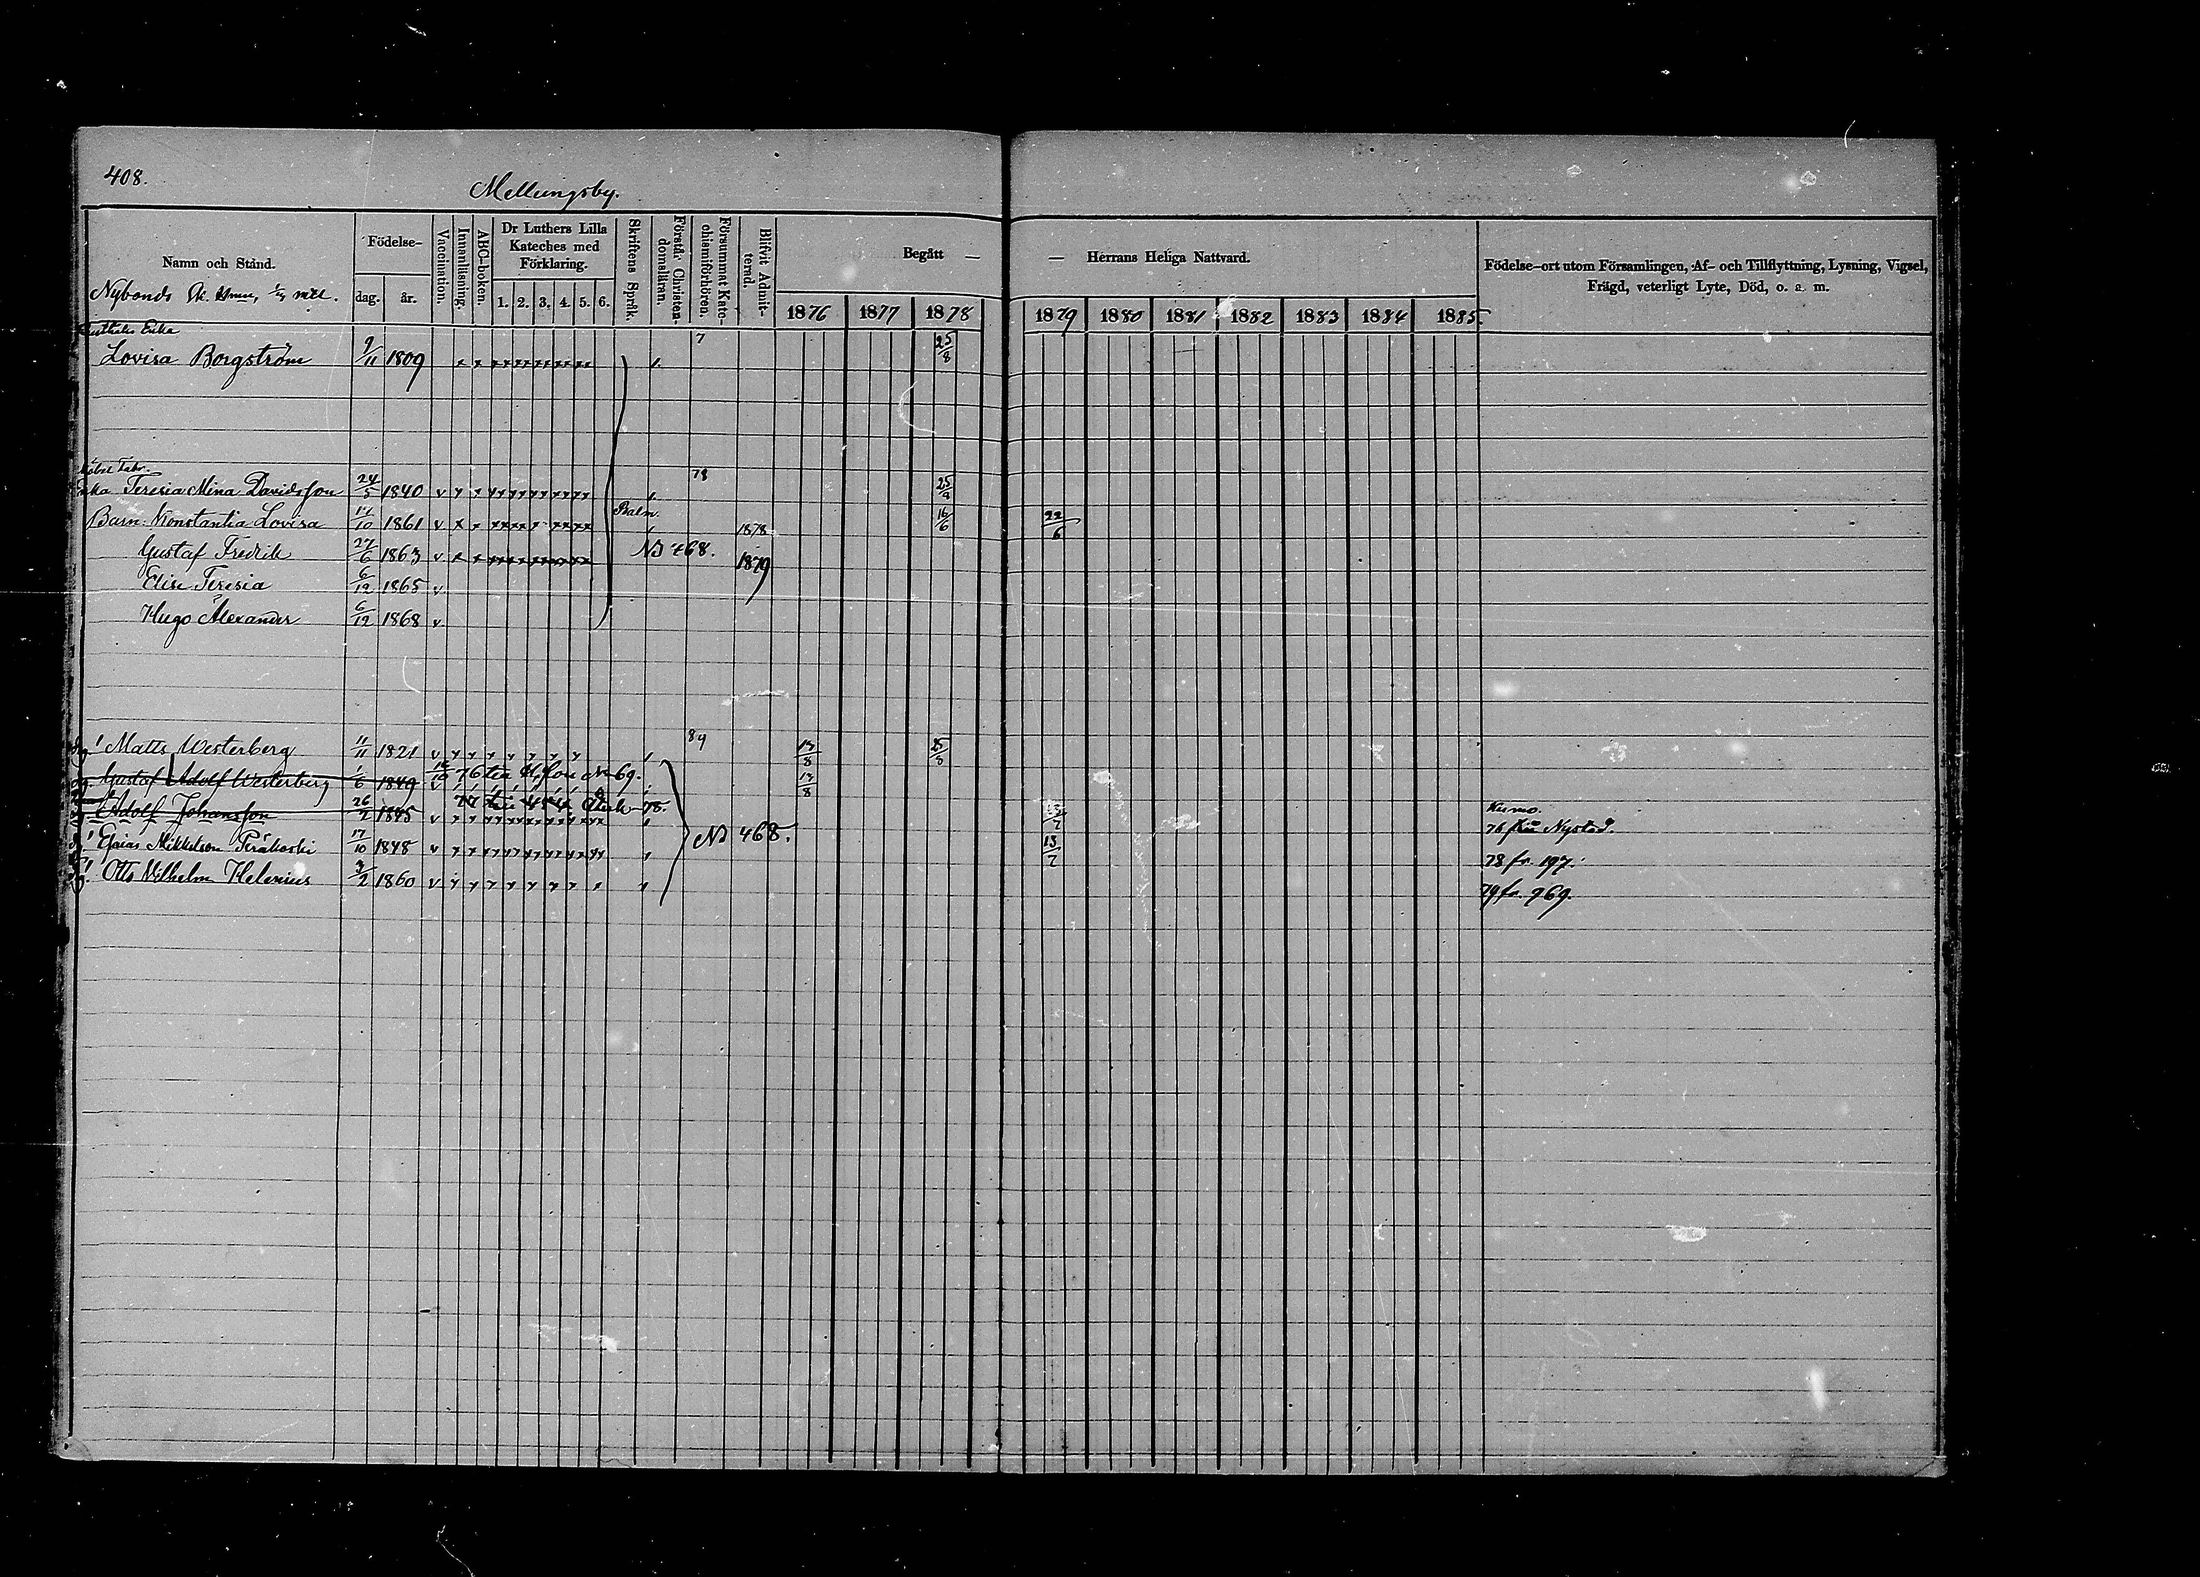 408.
Mellungsby.
Namn och Stånd.
Födelse-
dag.
år.
Vaccination.
Innanläsning.
ABC-boken.
Dr Luthers Lilla Kateches med Förklaring.
1. 2. 3. 4. 5. 6.
Skriftens Språk.
Förstår Christendomsläran.
Försummat Katechismiförhören.
Blifvit Admitterad.
Begått — — Herrans Heliga Nattvard.
1876 1877 1878 1879 1880 1881 1882 1883 1884 1885
Födelse-ort utom Församlingen, Af- och Tillflyttning, Lysning, Vigsel,
Frägd, veterligt Lyte, Död, o. a. m.
Nybonds
Enka
Lovisa Borgström 9/11 1809 7 25/8
Enka Teresia Mina Davidsson 24/5 1840 78 25/8
Barn: Konstantia Lovisa 17/10 1861 1878 16/6 22/6
Gustaf Fredrik 27/6 1863 N 468. 1879
Elise Teresia 6/12 1865
Hugo Alexander 6/12 1868
Matts Westerberg 11/11 1821 89 13/8 25/8
Gustaf Adolf Westerberg 1/6 1849 13/8
Adolf Johansson 26/2 1845 13/7 Kumo.
76 från Nystad.
Esaias Mikkelson Peräkoski 17/10 1848 N 468. 13/7 78 fr. 197.
Otto Vilhelm Helenius 3/2 1860 79 fr. 969.